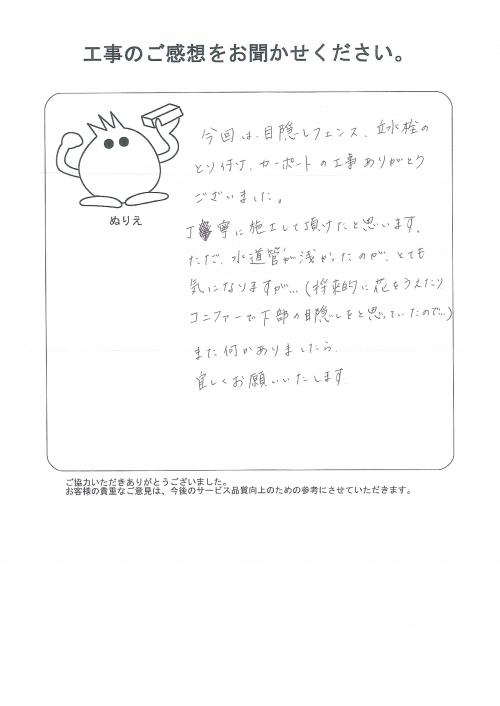 工事のご感想をお聞かせください。
ぬりえ
今回は、目隠しフェンス、立水栓の
とり付け、カーポートの工事ありがとう
ございました。
丁寧に施工して頂けたと思います。
ただ、水道管が浅かったのが、とても
気になりますが…(将来的に花をうえたり
コニファーで下部の目隠しをと思っていたので…)
また何かありましたら、
宜しくお願いいたします
ご協力いただきありがとうございました。
お客様の貴重なご意見は、今後のサービス品質向上のための参考にさせていただきます。